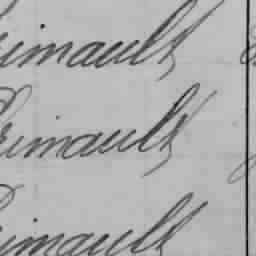 Grimault
Grimault
Grimault